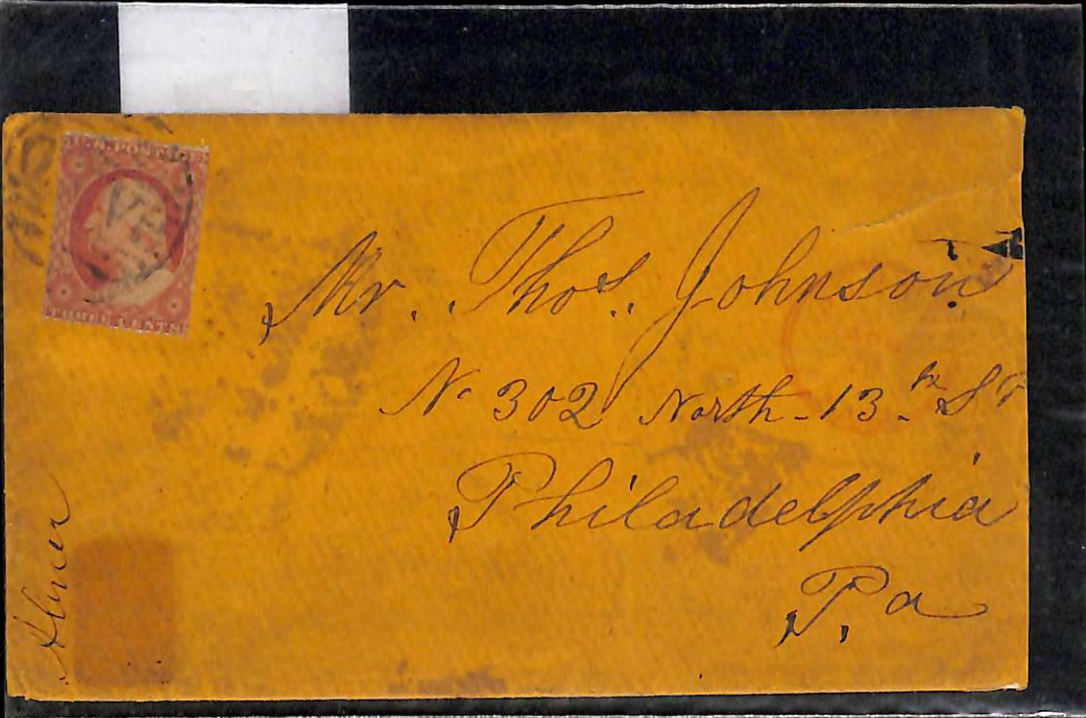 U.S. POSTAGE
THREE CENTS
Mr. Thos. Johnson
No 302 North-13.th St
Philadelphia
Pa